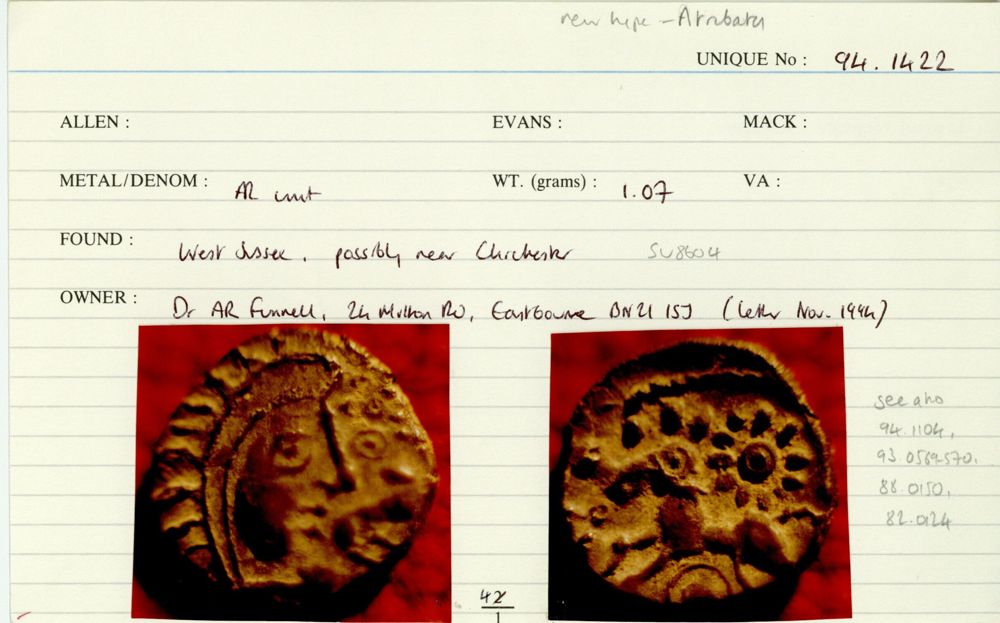 new type - Atrebates
UNIQUE No : 94.1422
ALLEN : EVANS : MACK :
METAL/DENOM : AR unit WT. (grams) : 1.07 VA :
FOUND : West Sussex, possibly near Chichester SU8604
OWNER : Dr AR Funnell, 24 Milton Rd, Eastbourne BN21 1SJ (letter Nov. 1994)
see also
94.1104,
93.0569-570,
88.0150,
82.0124
42
1